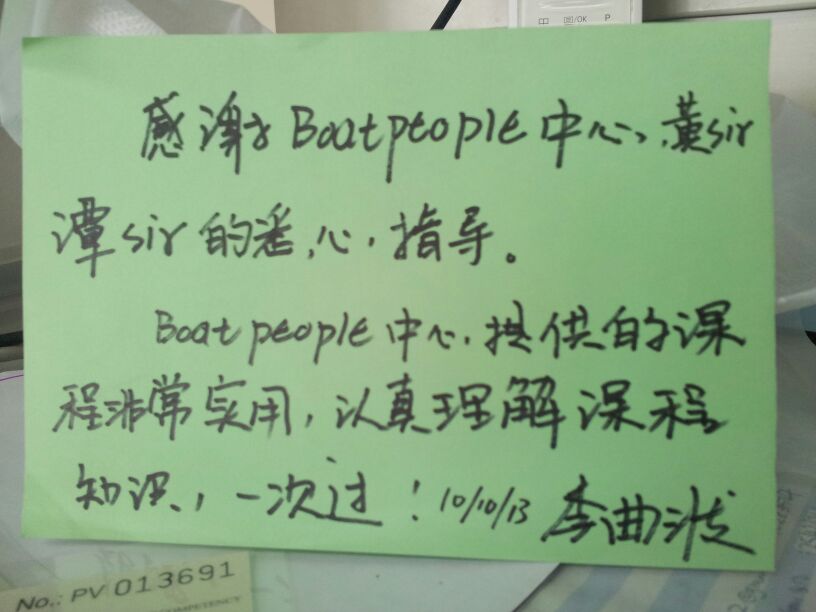 P
感谢 Boatpeople 中心、黄sir
潭sir 的悉心指导。
Boatpeople 中心提供的课
程非常实用，认真理解课程
知识，一次过！10/10/13 李曲
No.: PV 013691
COMPETENCY